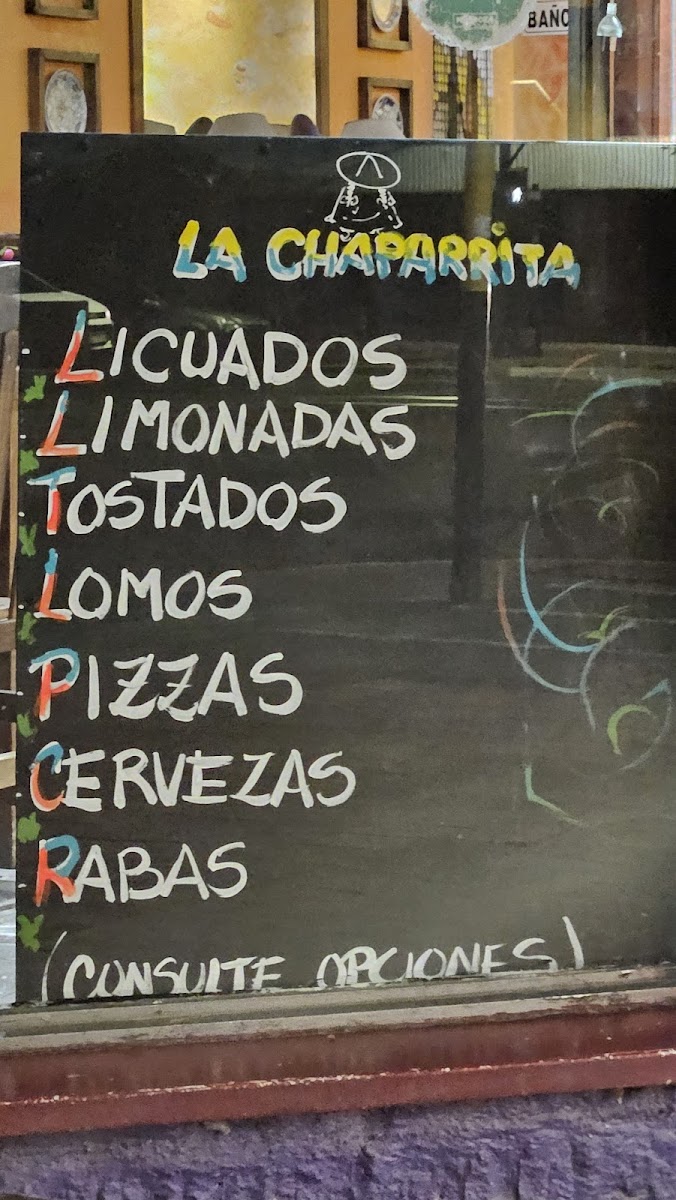 BAÑO
LA CHAPARRiTA
LICUADOS
LIMONADAS
TOSTADOS
LOMOS
PIZZAS
CERVEZAS
RABAS
(CONSULTE OPCIONES)